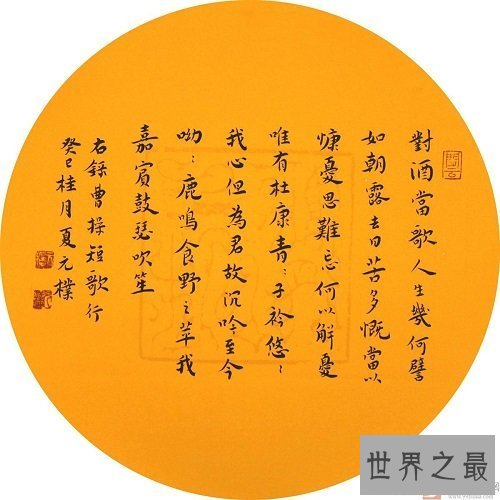 對酒當歌人生幾何譬
如朝露去日苦多慨當以
慷憂思難忘何以解憂
唯有杜康青〻子衿悠〻
我心但為君故沉吟至今
呦〻鹿鳴食野之苹我
嘉賓鼓瑟吹笙
右錄曹操短歌行
癸巳桂月夏元樸
世界之最